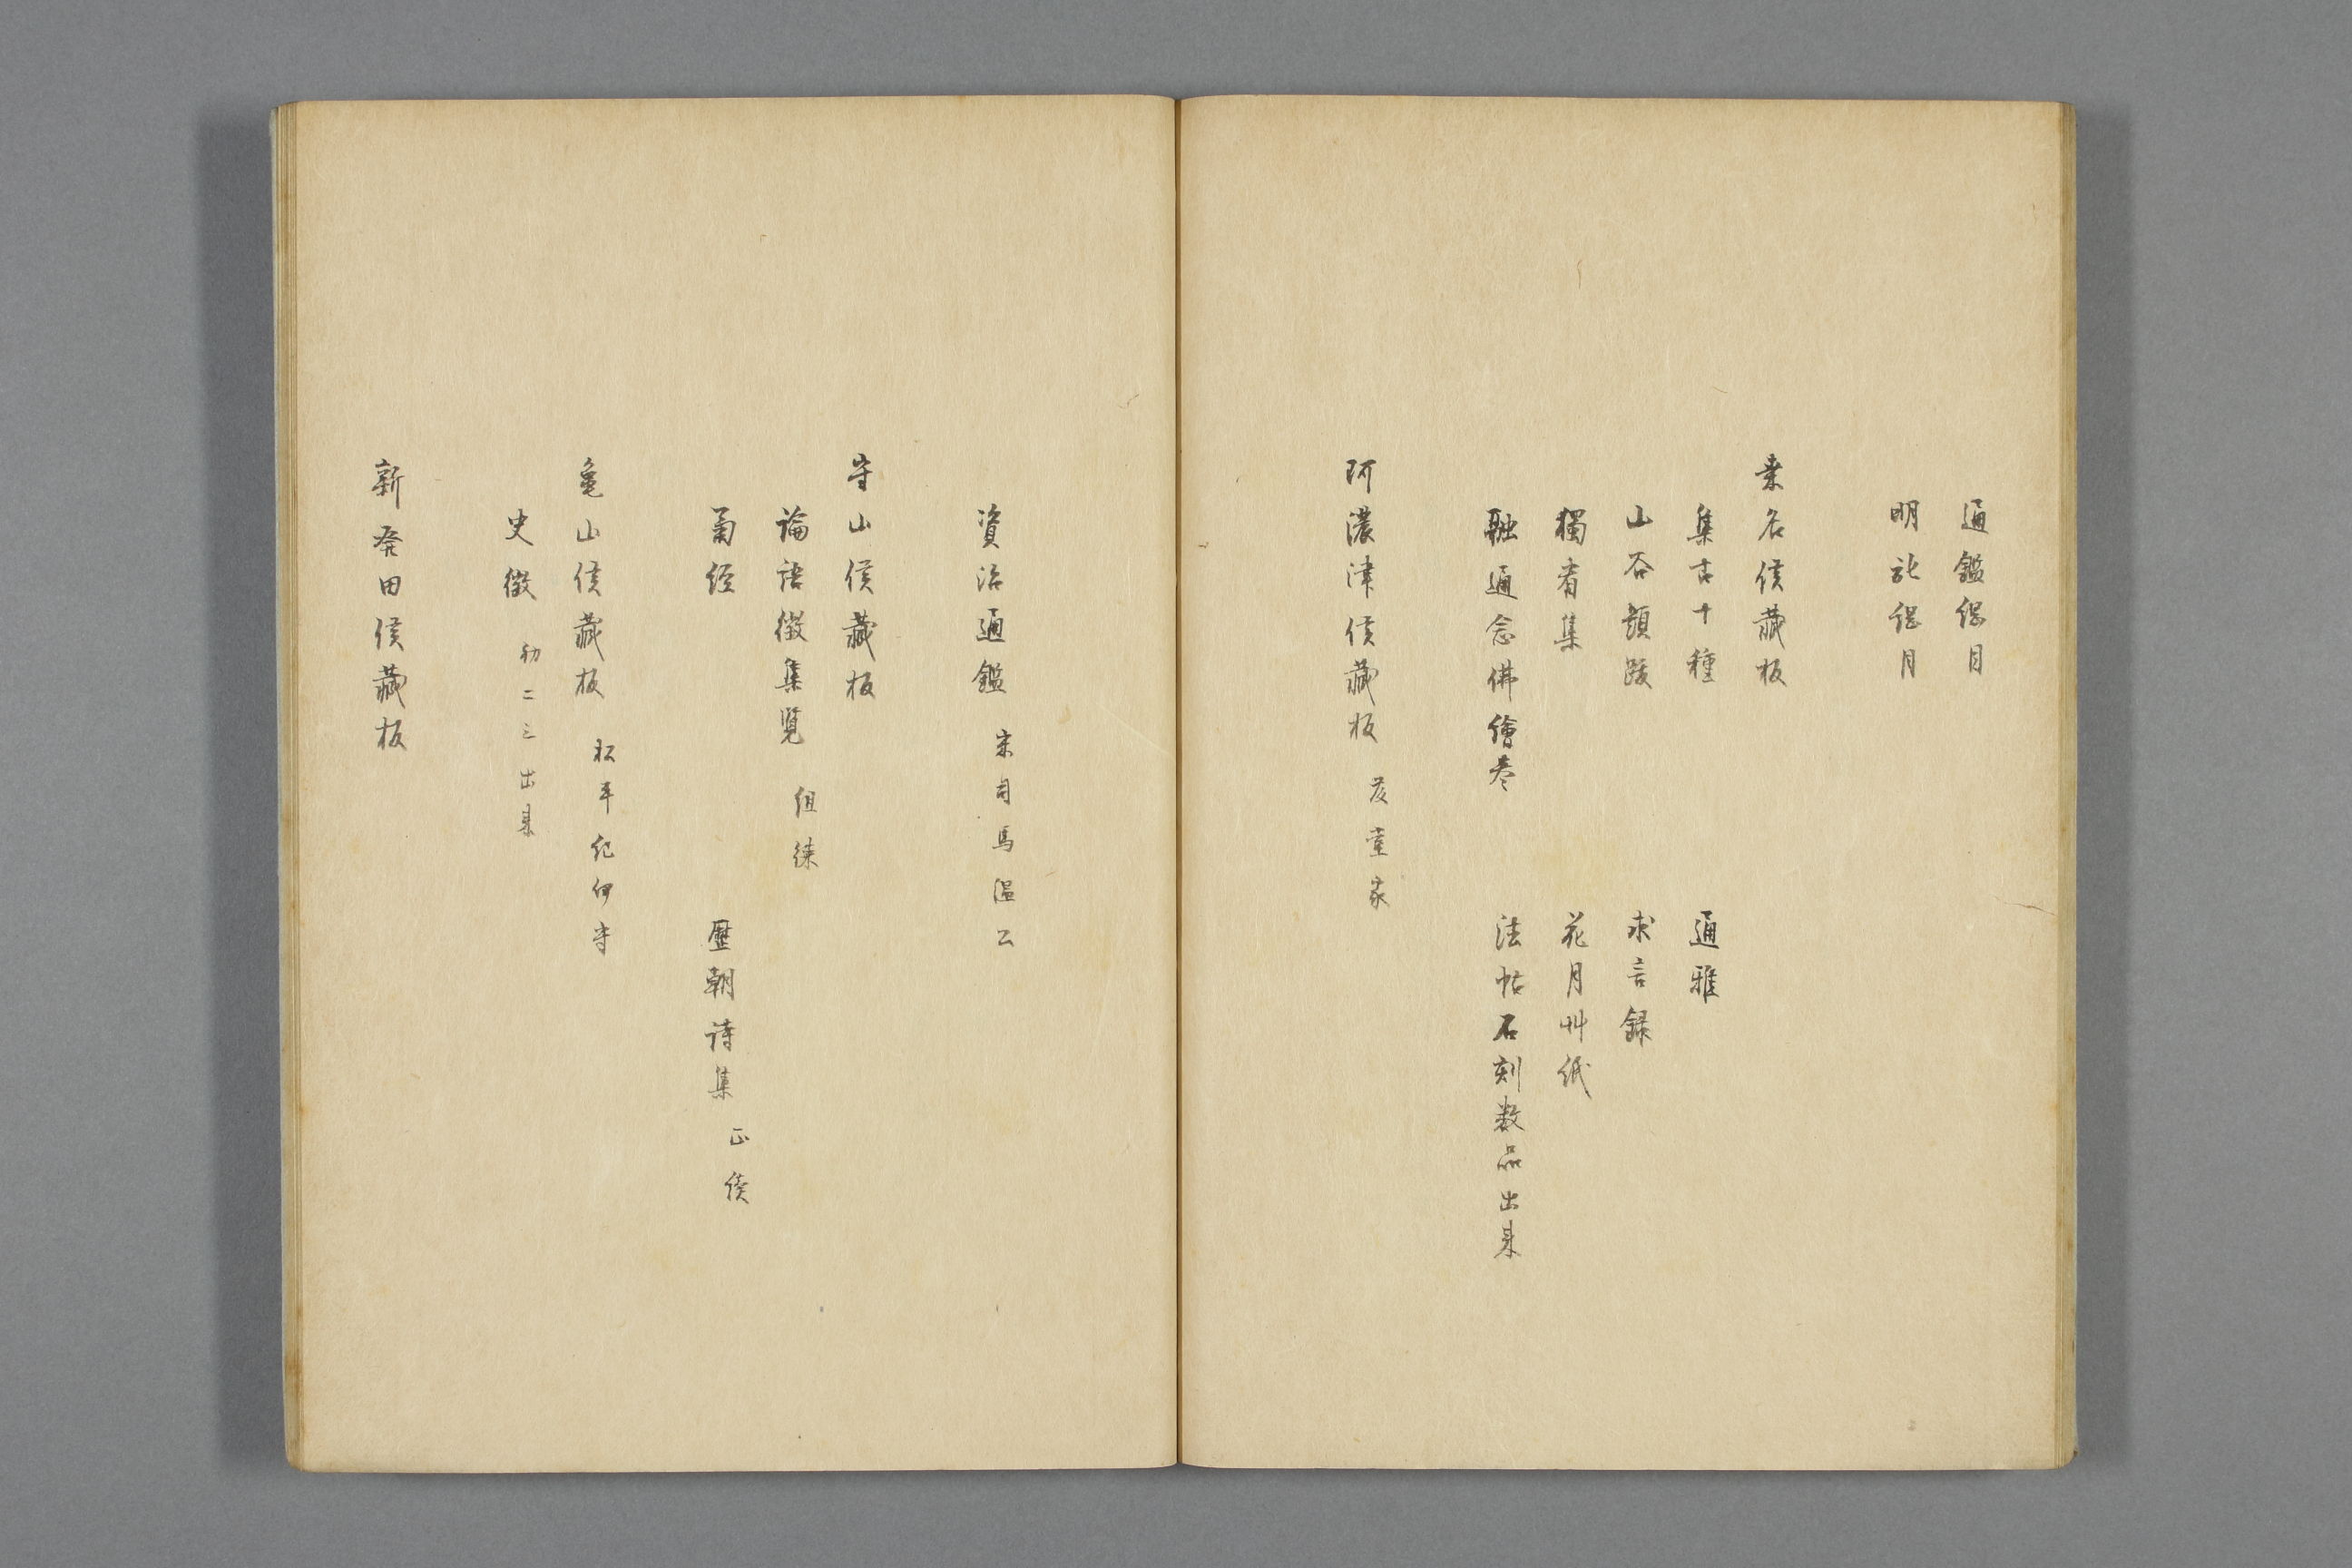 通鑑綱目
明紀綱目
桒名侯藏板
集古十種 通雅
山谷題跋 求言録
獨看集 花月艸紙
融通念佛繪巻 法帖石刻数品出来
阿濃津侯藏板 藤堂家
資治通鑑 宋司馬温公
守山侯藏板
論語徴集覧 徂徠
経 歴朝詩集 正続
亀山侯藏板 松平紀伊守
史徴 初二三出来
新発田侯藏板